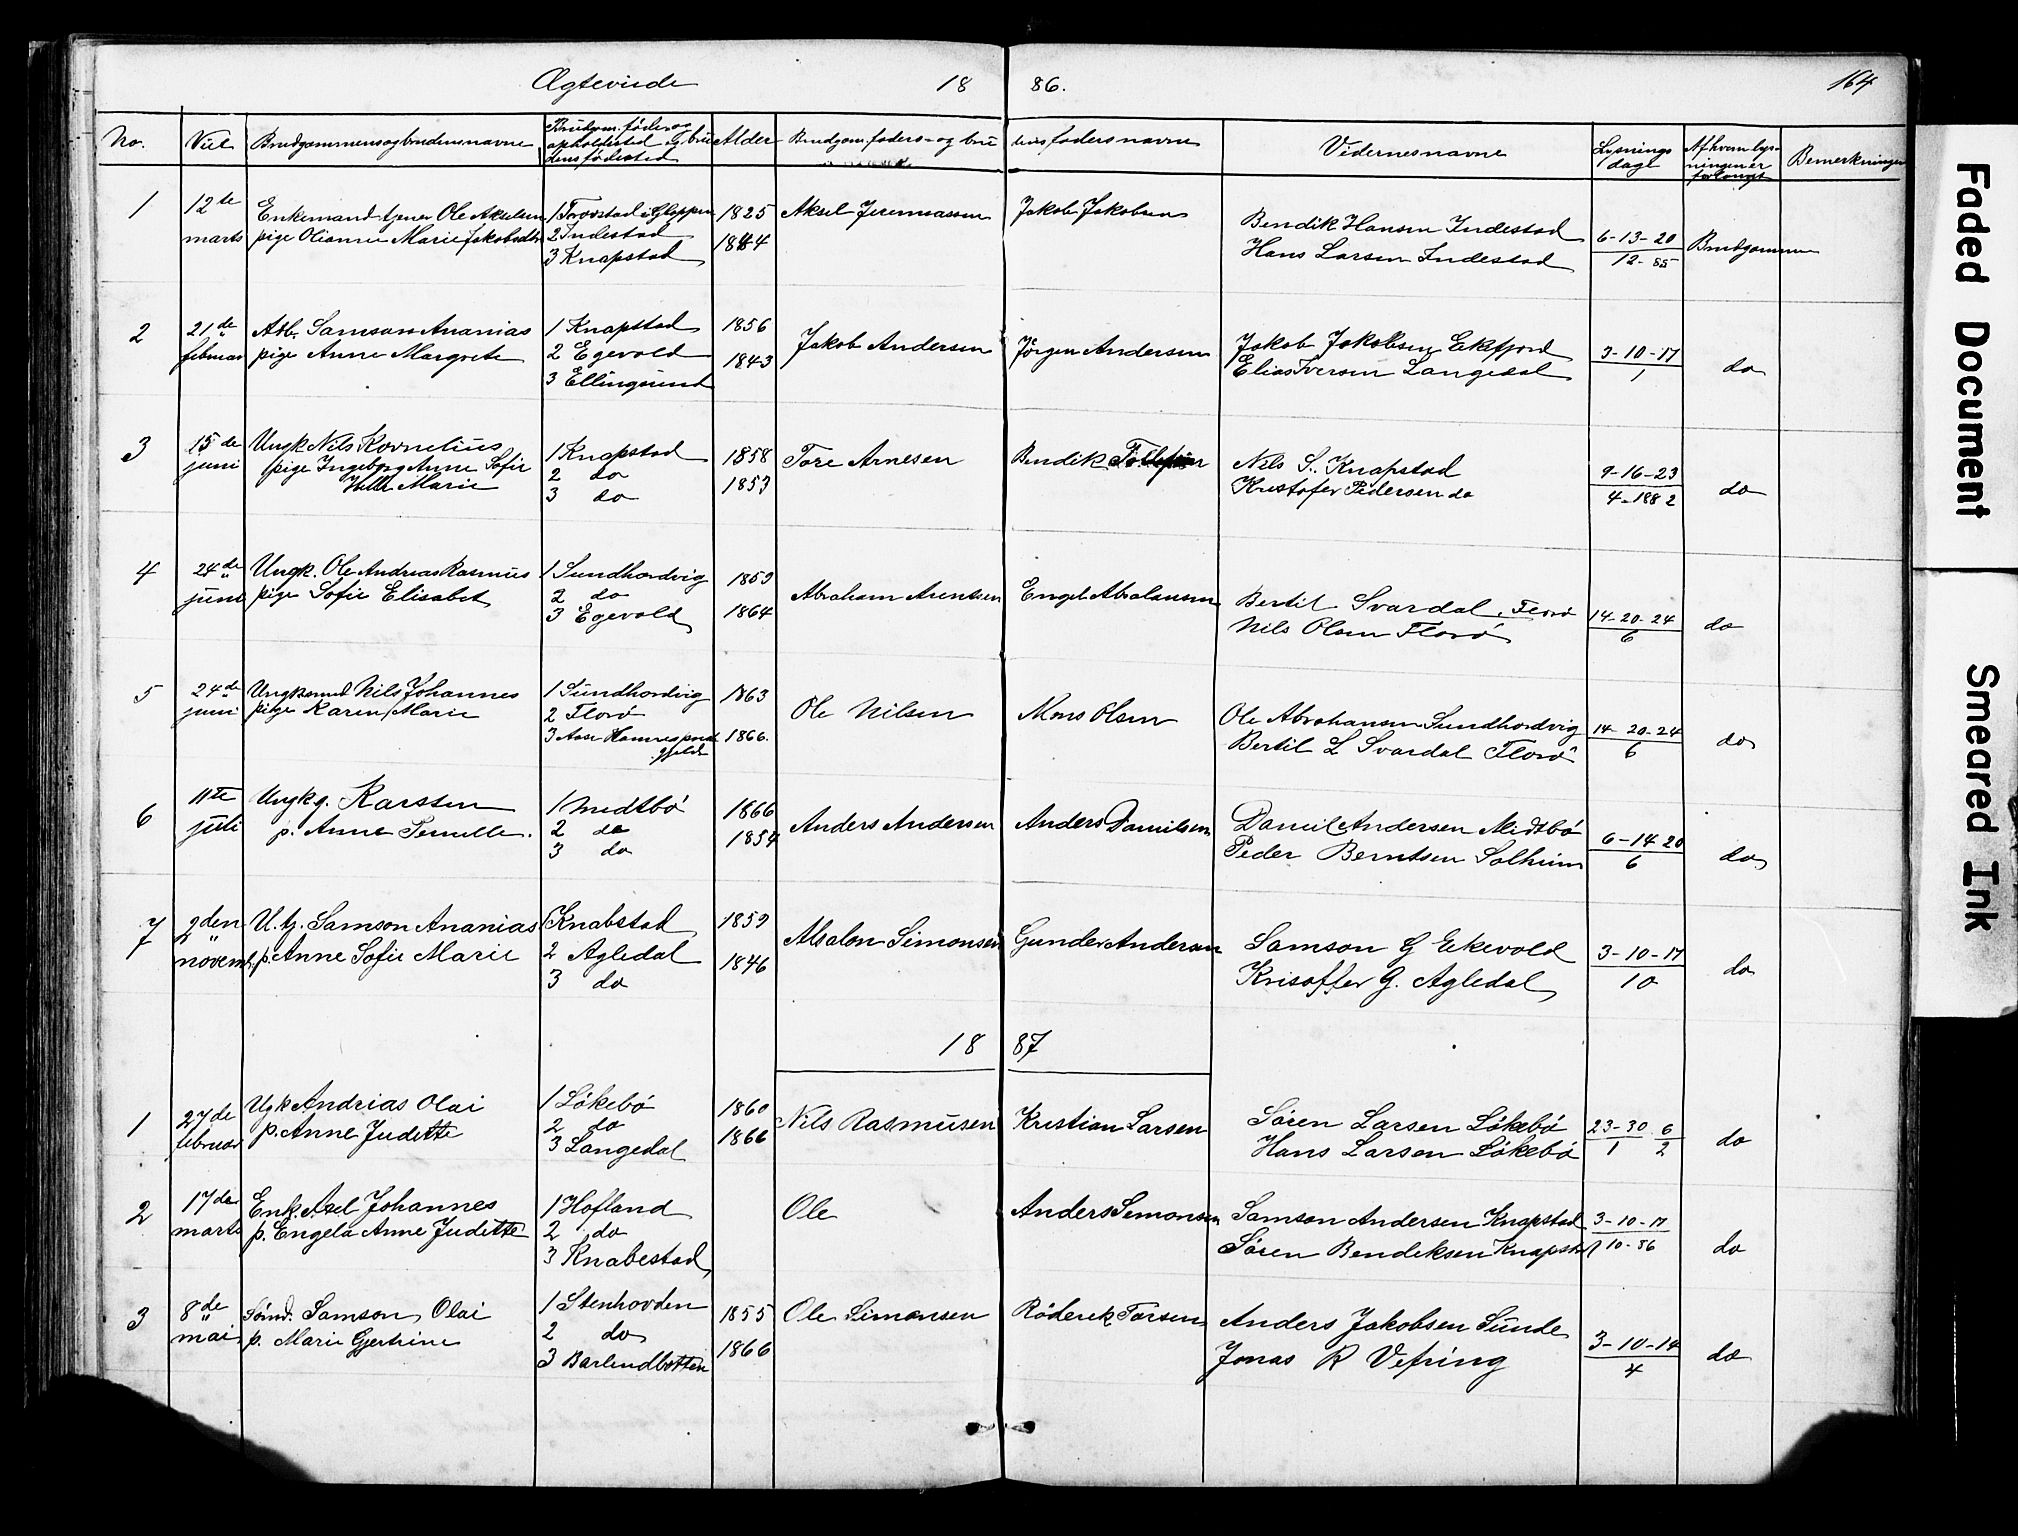 Ægteviede 18 86. 164
No. Viet Brudgommens og brudens navne Brudgom. føde og opholdssted og bru dens fødested Alder Brudgom. faders- og bru dens faders navne Vidernes navne Lysnings dage Af hvem lys- ningen er forlangt Bemerkninger
1 12te marts
Enkemand tjener Ole Akselsen
pige Olianne Marie Jakobsdtr
1 Torvstad i Gloppen
2 Indestad
3 Knapstad
1825
1844
Aksel Jeremiassen
Jakob Jakobsen
Bendik Hansen Indestad
Hans Larsen Indestad
6-13-20
12-85
Brudgommen
2 21de februar
Arb. Samson Ananias
pige Anne Margrete
1 Knapstad
2 Egevold
3 Ellingsund
1856
1843
Jakob Andersen
Jörgen Andersen
Jakob Jakobsen Eikefjord
Elias Iversen Langedal
3-10-17
1
do
3 15de juni
Ungk Nils Kornelius
pige Ingeborg Anne Sofie
Helle Marie
1 Knapstad
2 do
3 do
1858
1853
Tore Arnesen
Bendik
Nils S. Knapstad
Kristofer Pedersen do
9-16-23
4-1882
do
4 24de juni
Ungk. Ole Andreas Rasmus
pige Sofie Elisabet
1 Sundhordvig
2 do
3 Egevold
1859
1864
Abraham Arentsen
Engel Abrahamsen
Bertil Svardal. Florö
Nils Olsen Florö
14-20-24
6
do
5 24de juni
Ungksmed Nils Johannes
pige Karen Marie
1 Sundhordvig
2 Florö
3 Aase
1863
1866.
Ole Nilsen
Mons Olsen
Ole Abrahamsen Sundhordvig
Bertil L Svardal Florö
14-20-24
6
do
6 11te juli
Ungkg. Karsten
p. Anne Pernille.
1 Midtbö
2 do
3 do
1866
1854
Anders Andersen
Anders Danielsen
Daniel Andersen Midtbö
Peder Berntsen Solheim
6-14 20
6
do
7 2den novemb.
U.k. Samson Ananias
p. Anne Sofie Marie
1 Knabstad
2 Agledal
3 do
1859
1846
Absalon Simonsen
Gunder Andersen
Samson G Eikevold
Krisoffer G. Agledal
3-10-17
10
do
18 87
1 27de februar
Ugk Andreas Olai
p. Anne Judette
1 Lökebö
2 do
3 Langedal
1860
1866
Nils Rasmusen
Kristian Larsen
Sören Larsen Lökebö
Hans Larsen Lökebö
23-30 6
1 2
do
2 17de marts
Enk. Axel Johannes
p. Engela Anne Juditte
1 Hofland
2 do
3 Knabestad
Ole
Anders Simonsen
Samson Andersen Knapstad
Sören Bendiksen Knapstad
3-10-17
10-86
do
3 8de mai
Sömd. Samson Olai
p. Marie Gjertrine
1 Stenhovden
2 do
3 Barlindbotten
1855
1866
Ole Simonsen
Röderek Torsen
Anders Jakobsen Sunde
Jonas R Vefring
3-10-14
4
do
Faded Document
Smeared Ink